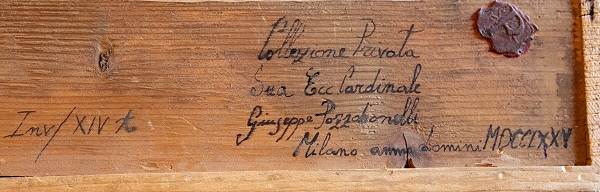 Collezione Privata
Sua Ecc Cardinale
Giuseppe Pozzobonelli
Milano anno domini MDCCLXXV
Inv/XIV t